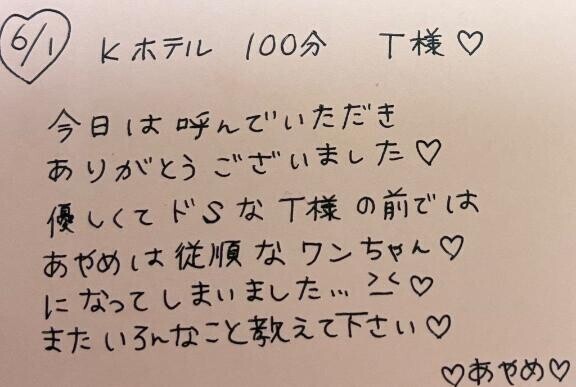 6/1 Kホテル 100分 T様♡
今日は呼んでいただき
ありがとうございました♡
優しくてドSなT様の前では
あやめは従順なワンちゃん♡
になってしまいました… ><♡
またいろんなこと教えて下さい♡
♡あやめ♡